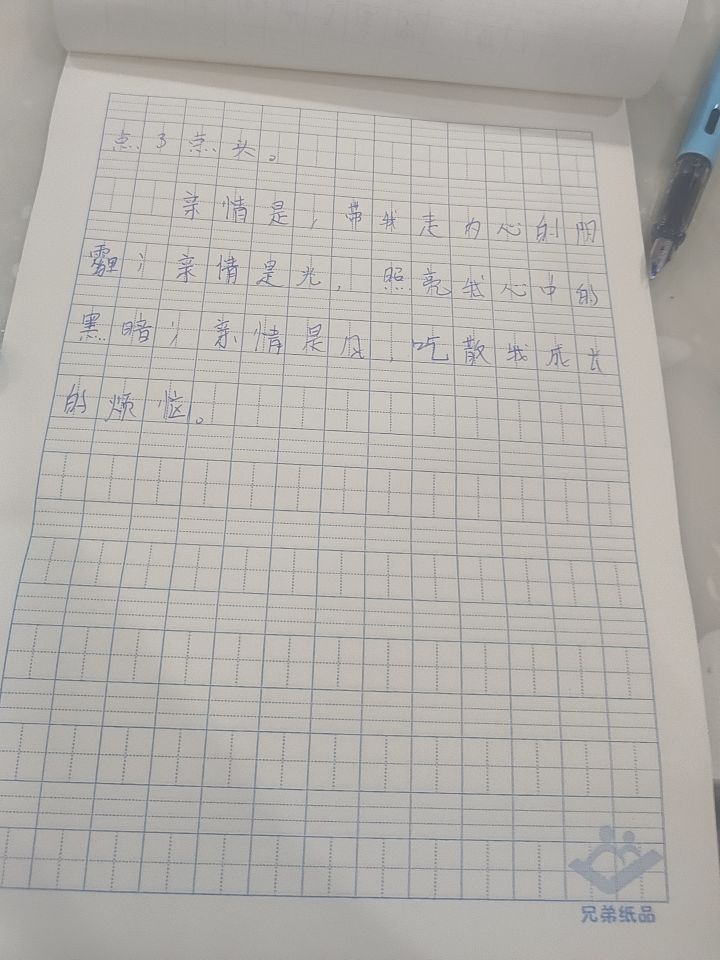 点了点头。
亲情是，带我走内心的阴
霾；亲情是光，照亮我心中的
黑暗；亲情是风，吃散我成长
的烦恼。
兄弟纸品